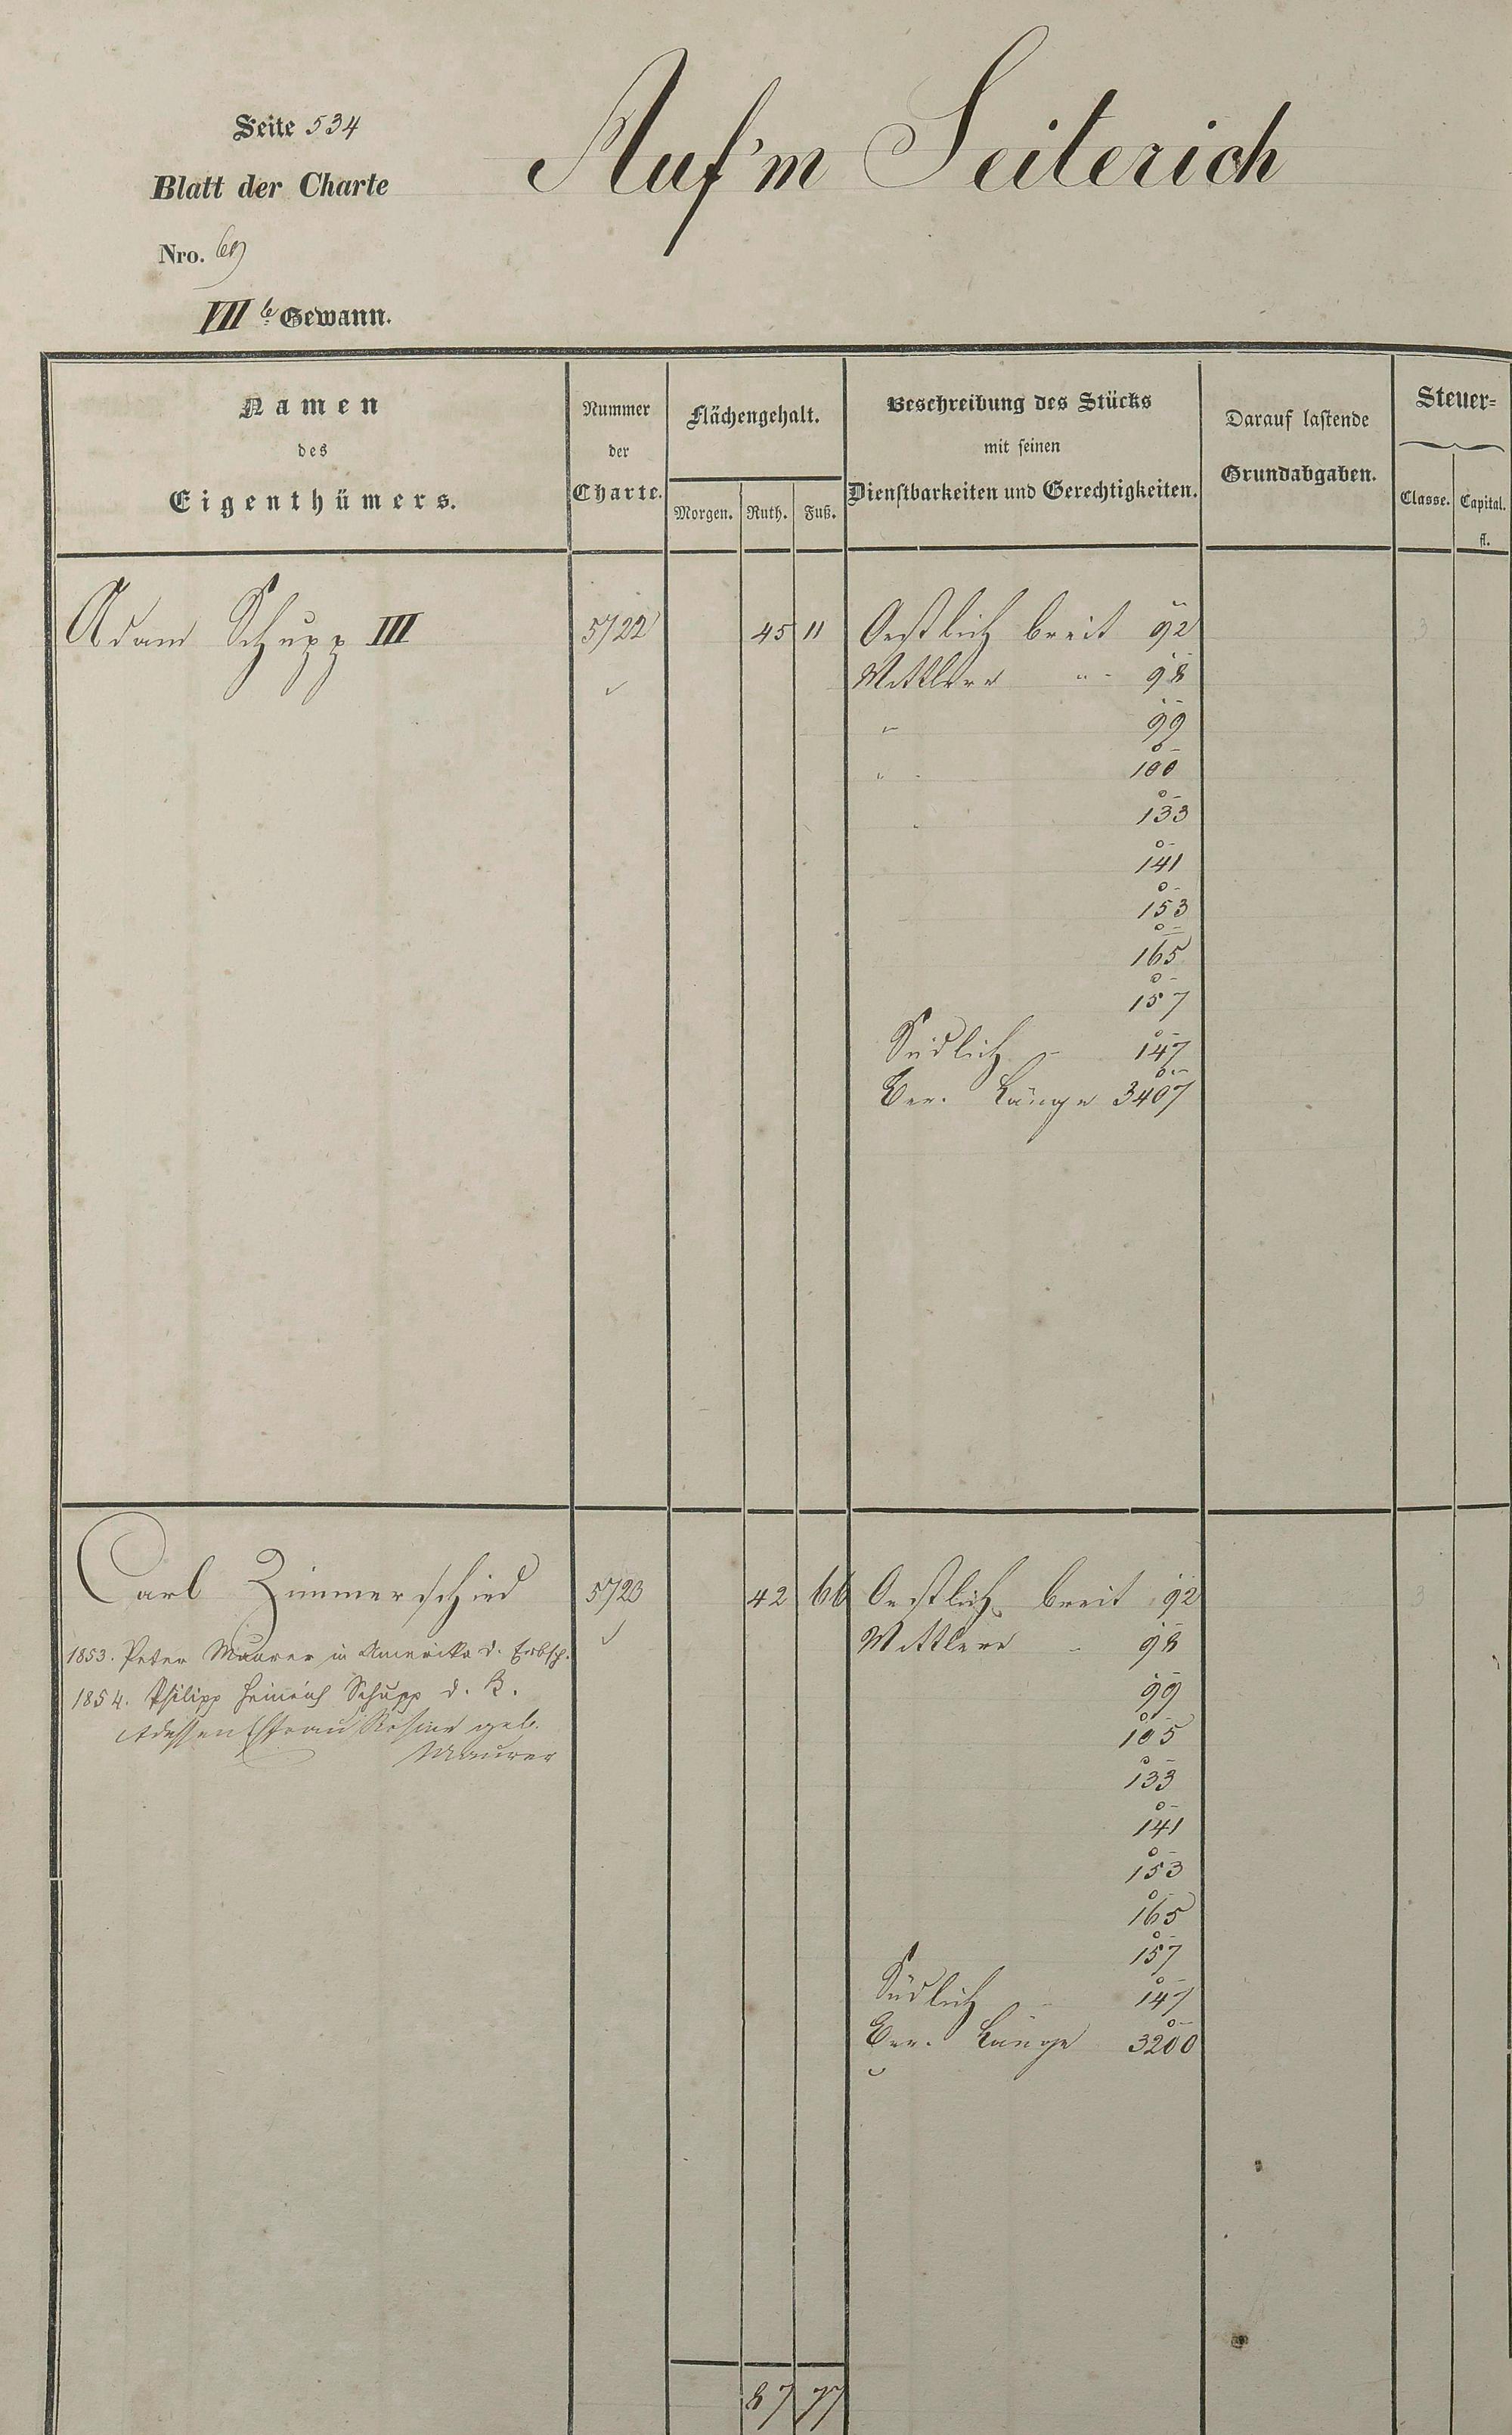 Seite 534
Auf'm Seiterich
Blatt der Charte
Nro. 69
VII te Gewann.
Namen
des
Eigenthümers.
Nummer
der
Charte.
Flächengehalt.
Morgen. Ruth. Fuß.
Beschreibung des Stücks
mit seinen
Dienstbarkeiten und Gerechtigkeiten.
Darauf lastende
Grundabgaben.
Steuer=
Classe. Capital.
fl.
Adam Schupp III 5722 45 11 Oestlich breit 92 3
Mittlere " 98
" 99
" 100
133
141
153
165
157
Südlich " 147
Ver. Länge 3407
Carl Zimmerschied 5723 42 66 Oestlich breit 92 3
Mittlere " 98
1853. Peter Maurer in Amerika d. Erbsch.
1854. Philipp Heinrich Schupp d. K. 99
& dessen Ehfrau Rosine geb. 105
Maurer
133
141
153
165
157
Südlich 147
Ver. Länge 3200
87 77